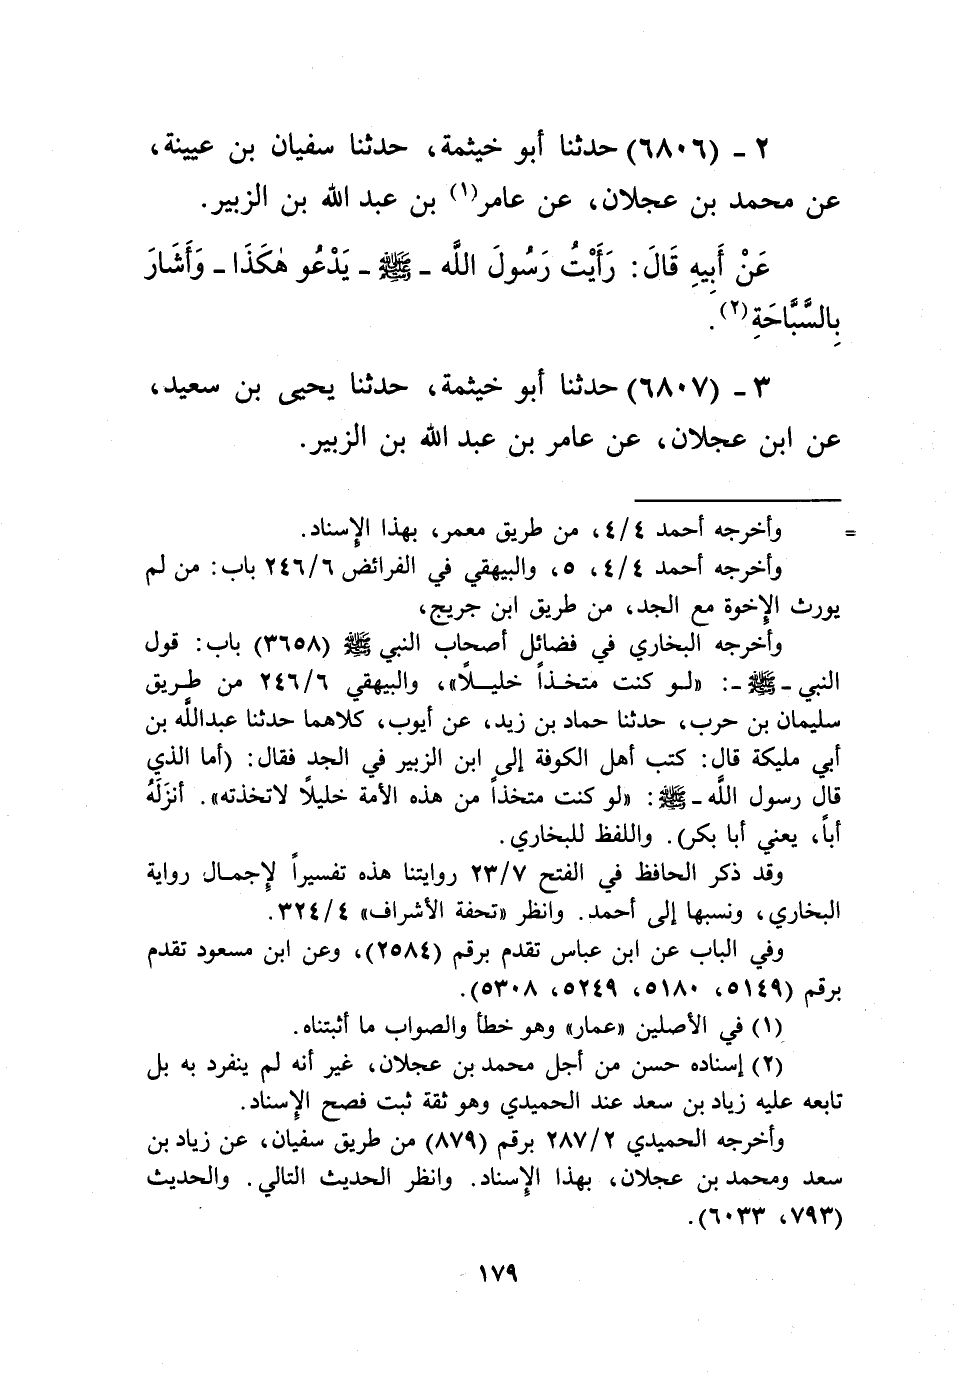 ٢ ـ (٦٨٠٦) حدثنا أبو خيثمة، حدثنا سفيان بن عيينة،
عن محمد بن عجلان، عن عامر(١) بن عبد الله بن الزبير.
عَنْ أَبِيهِ قَالَ: رَأَيْتُ رَسُولَ اللَّه ـ ﷺ ـ يَدْعُو هٰكَذَا ـ وَأَشَارَ
بِالسَّبَّاحَةِ(٢).
٣ ـ (٦٨٠٧) حدثنا أبو خيثمة، حدثنا يحيى بن سعيد،
عن ابن عجلان، عن عامر بن عبد الله بن الزبير.
= وأخرجه أحمد ٤/٤، من طريق معمر، بهذا الإِسناد.
وأخرجه أحمد ٤/٤، ٥، والبيهقي في الفرائض ٢٤٦/٦ باب: من لم
يورث الإِخوة مع الجد، من طريق ابن جريج،
وأخرجه البخاري في فضائل أصحاب النبي ﷺ (٣٦٥٨) باب: قول
النبي ـ ﷺ ـ: «لو كنت متخذاً خليلاً»، والبيهقي ٢٤٦/٦ من طريق
سليمان بن حرب، حدثنا حماد بن زيد، عن أيوب، كلاهما حدثنا عبدالله بن
أبي مليكة قال: كتب أهل الكوفة إلى ابن الزبير في الجد فقال: (أما الذي
قال رسول اللَّه ـ ﷺ: «لو كنت متخذاً من هذه الأمة خليلاً لاتخذته». أنزَلَهُ
أباً، يعني أبا بكر). واللفظ للبخاري.
وقد ذكر الحافظ في الفتح ٢٣/٧ روايتنا هذه تفسيراً لإِجمال رواية
البخاري، ونسبها إلى أحمد. وانظر «تحفة الأشراف» ٣٢٤/٤.
وفي الباب عن ابن عباس تقدم برقم (٢٥٨٤)، وعن ابن مسعود تقدم
برقم (٥١٤٩، ٥١٨٠، ٥٢٤٩، ٥٣٠٨).
(١) في الأصلين «عمار» وهو خطأ والصواب ما أثبتناه.
(٢) إسناده حسن من أجل محمد بن عجلان، غير أنه لم ينفرد به بل
تابعه عليه زياد بن سعد عند الحميدي وهو ثقة ثبت فصح الإِسناد.
وأخرجه الحميدي ٢٨٧/٢ برقم (٨٧٩) من طريق سفيان، عن زياد بن
سعد ومحمد بن عجلان، بهذا الإِسناد. وانظر الحديث التالي. والحديث
(٧٩٣، ٦٠٣٣).
١٧٩